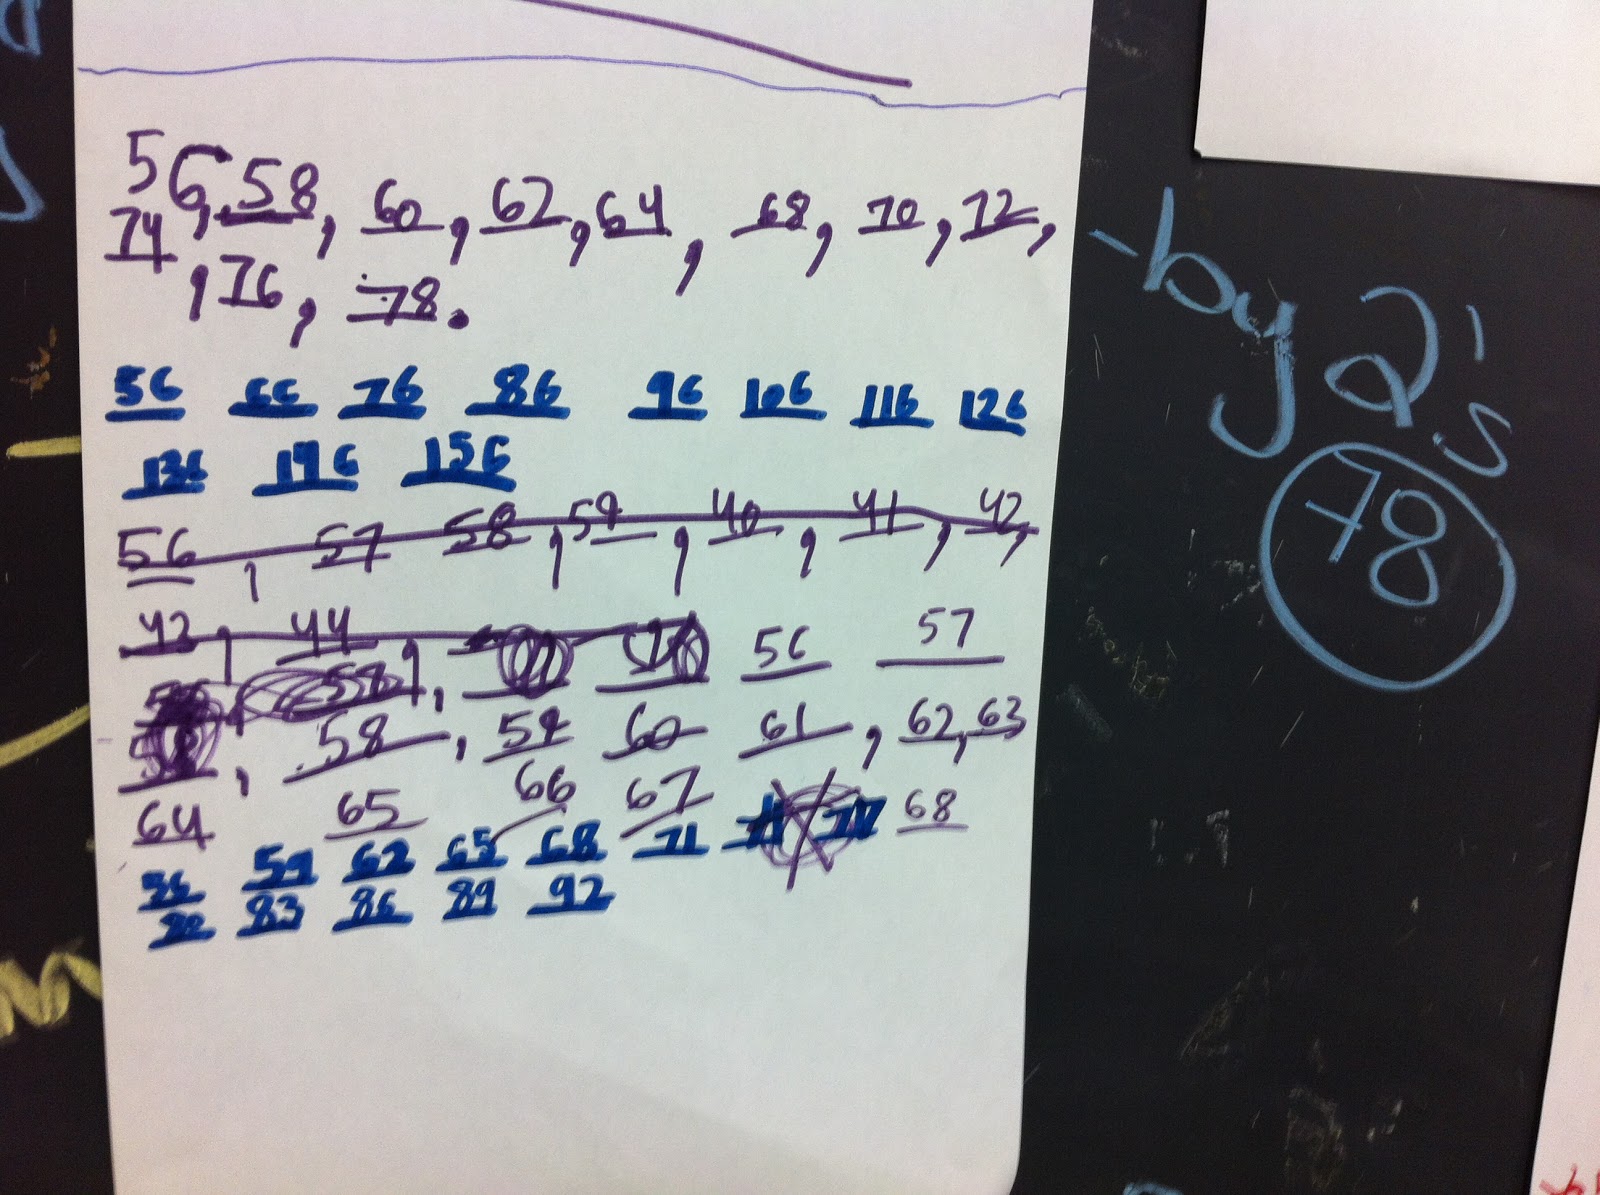 56, 58, 60, 62, 64, 68, 70, 72,
74, 76, 78.
56 66 76 86 96 106 116 126
136 146 156
56, 57 58, 59, 40, 41, 42,
43, 44,
56 57
58, 59 60 61, 62, 63
64 65 66 67 68
56 59 62 65 68 71
80 83 86 89 92
-by 2's
78